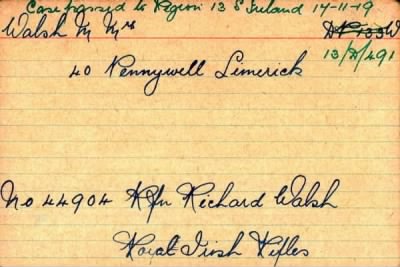 Case passed to Region 13 S Ireland 14-11-19
Walsh M Mrs
13/D/491
40 Pennywell Limerick
No 44904 Rfn Richard Walsh
Royal Irish Rifles